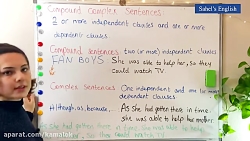 Sahel's English
Compound Complex Sentences:
2 or more independent clauses and one or more
dependent clauses.
Compound sentences two (or most) independent clauses
FAN BOYS She was able to help her, so they
could watch TV.
Complex Sentences One independent and one (or more)
dependent clauses
Although, as, because, As she had gotten there in time,
she was able to help her mother.
As she had gotten there in time, she was able
aparat.com/kamalek